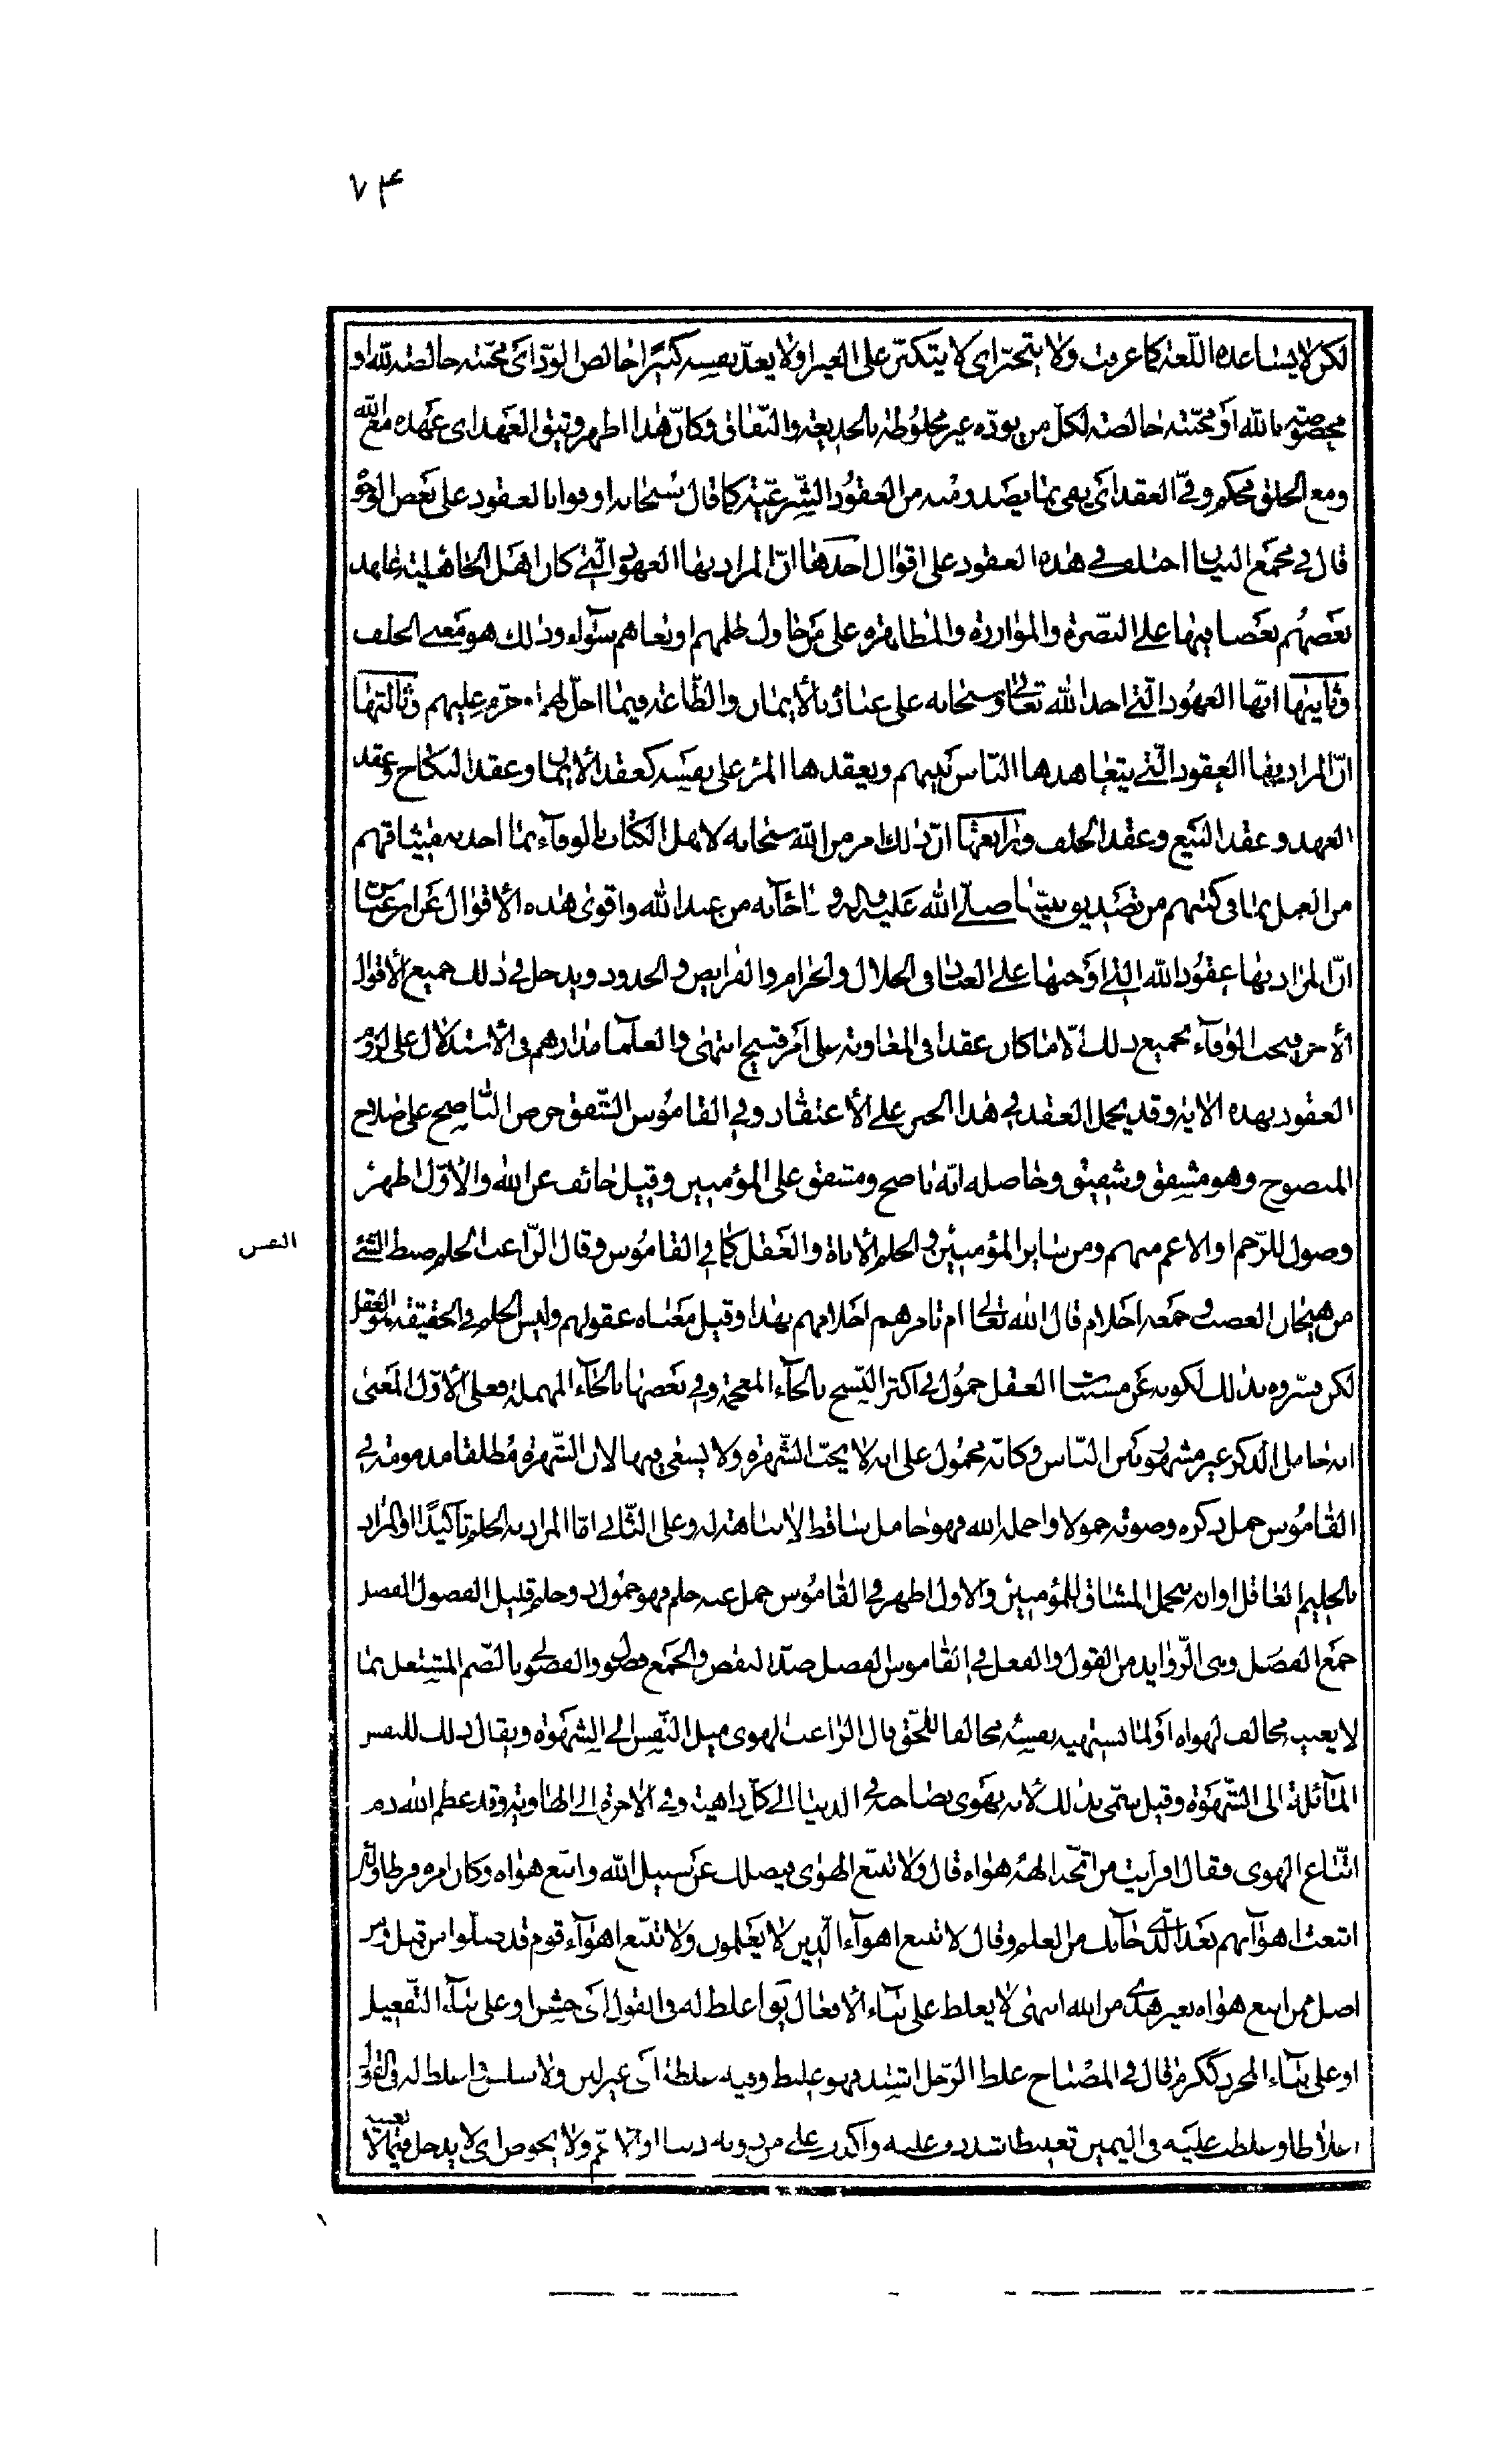 ٧٤
لكن لا يساعده اللّغة كما عرفت ولا يتجبّر اى لا يتكبّر على الغير او لا يعدّ نفسه كبيرًا خالص الودّ اى محبّته خالصة لله او
مخصوصة بالله او محبّته خالصة لكلّ من يودّه غير مخلوطة بالخديعة والنّفاق وكانّ هذا اظهر وثيق العهد اى عهده مع الله
ومع الخلق محكم وفىّ العقد اى يفى بما يصدر منه من العقود الشّرعيّة كما قال سبحانه اوفوا بالعقود على بعض الوجوه
قال فى مجمع البيان اختلف فى هذه العقود على اقوال احدها انّ المراد بها العهود الّتى كان اهل الجاهلية عاهد
بعضهم بعضا فيها على النصرة والموازرة والمظاهرة على من حاول ظلمهم او بغاهم سوآء وذلك هو معنى الحلف
وثانيها انّها العهود الّتى اخذ الله تعالى وسبحانه على عباده بالأيمان والطّاعة فيما احلّ لهم او حرّم عليهم وثالثها
انّ المراد بها العقود الّتى يتعاهدها النّاس بينهم ويعقدها المرء على نفسه كعقد الأيمان وعقد النكاح وعقد
العهد وعقد البيع وعقد الحلف ورابعها انّ ذلك امر من الله سبحانه لاهل الكتاب بالوفآء بما اخذ به ميثاقهم
من العمل بما فى كتبهم من تصديق نبيّنا صلّى الله عليه وآله وما جآء به من عند الله واقوى هذه الأقوال عن ابن عبّاس
انّ المراد بها عقود الله الّتى اوجبها على العباد فى الحلال والحرام والفرايض والحدود ويدخل فى ذلك جميع الأقوال
الأخر فيجب الوفآء بجميع ذلك الّا ما كان عقدا فى المعاونة على امر قبيح انتهى والعلمآء مدارهم فى الأستدلال على لزوم
العقود بهذه الاية وقد يحمل العقد فى هذا الخبر على الأعتقاد وفى القاموس الشّفق حرص النّاصح على صلاح
المنصوح وهو مشفق وشفيق وحاصله انّه ناصح ومشفق على المؤمنين وقيل خائف عن الله والاوّل اظهر
وصول للرّحم او الاعم منهم ومن ساير المؤمنين والحلم الأناة والعقل كما فى القاموس وقال الرّاغب الحلم ضبط الشّئ
النفس
من هيجان الغضب وجمعه احلام قال الله تعالى ام تامرهم احلامهم بهذا وقيل معناه عقولهم وليس الحلم فى الحقيقة هو العقل
لكن فسّروه بذلك لكونه عن مسبّبات العقل خمول فى اكثر النّسخ بالخآء المعجمة وفى بعضها بالحآء المهملة فعلى الأوّل المعنى
انه خامل الذكر غير مشهور بين النّاس وكانّه محمول على انه لا يحبّ الشّهرة ولا يسعى فيها لا ان الشّهرة مطلقا مذمومة فى
القاموس خمل ذكره وصوته خمولا واخمله الله فهو خامل ساقط لا نباهة له وعلى الثّانى امّا المراد به الحلم تاكيدًا او المراد
بالحليم العاقل او انه يتحمل المشاق للمؤمنين والاول اظهر فى القاموس حمل عنه حلم فهو حمول ذو حلم قليل الفضول الفضول
جمع الفضل وهى الزّوايد من القول والفعل فى القاموس الفضل ضدّ النقص والجمع فضول والفضولى بالضّم المشتغل بما
لا يعنيه مخالف لهواه اى لما تشتهيه نفسه مخالفا للحقّ قال الرّاغب الهوى ميل النّفس الى الشهوة ويقال ذلك للنفس
المآئلة الى الشّهوة وقيل سمّى بذلك لأنه يهوى بصاحبه فى الدنيا الى كلّ داهية وفى الاخرة الى الهاوية وقد عظم الله ذم
اتّباع الهوى فقال افرأيت من اتّخذ الهه هواه قال ولا تتبع الهوى فيضلك عن سبيل الله واتبع هواه وكان امره فرطا ولئن
اتبعت اهوآءهم بعد الّذى جآءك من العلم وقال لا تتبع اهوآء الّذين لا يعلمون ولا تتّبع اهوآء قوم قد ضلّوا من قبل ومن
اضل ممن اتبع هواه بغير هدى من الله انتهى لا يغلظ على بنآء الأفعال يق اغلظ له فى القول اى خشن او على بنآء التّفعيل
او على بنآء المجرد ككرم قال فى المصباح غلظ الرّجل اشتد فهو غليظ وفيه غلظة اى غير لين ولا سلس واغلظ له فى القول
اغلاظا وغلظت عليه فى اليمين تغليظا شددت عليه واكدت على من دونه دينا او لا ثم ولا يخوض اى لا يدخل فيما لا يعنيه